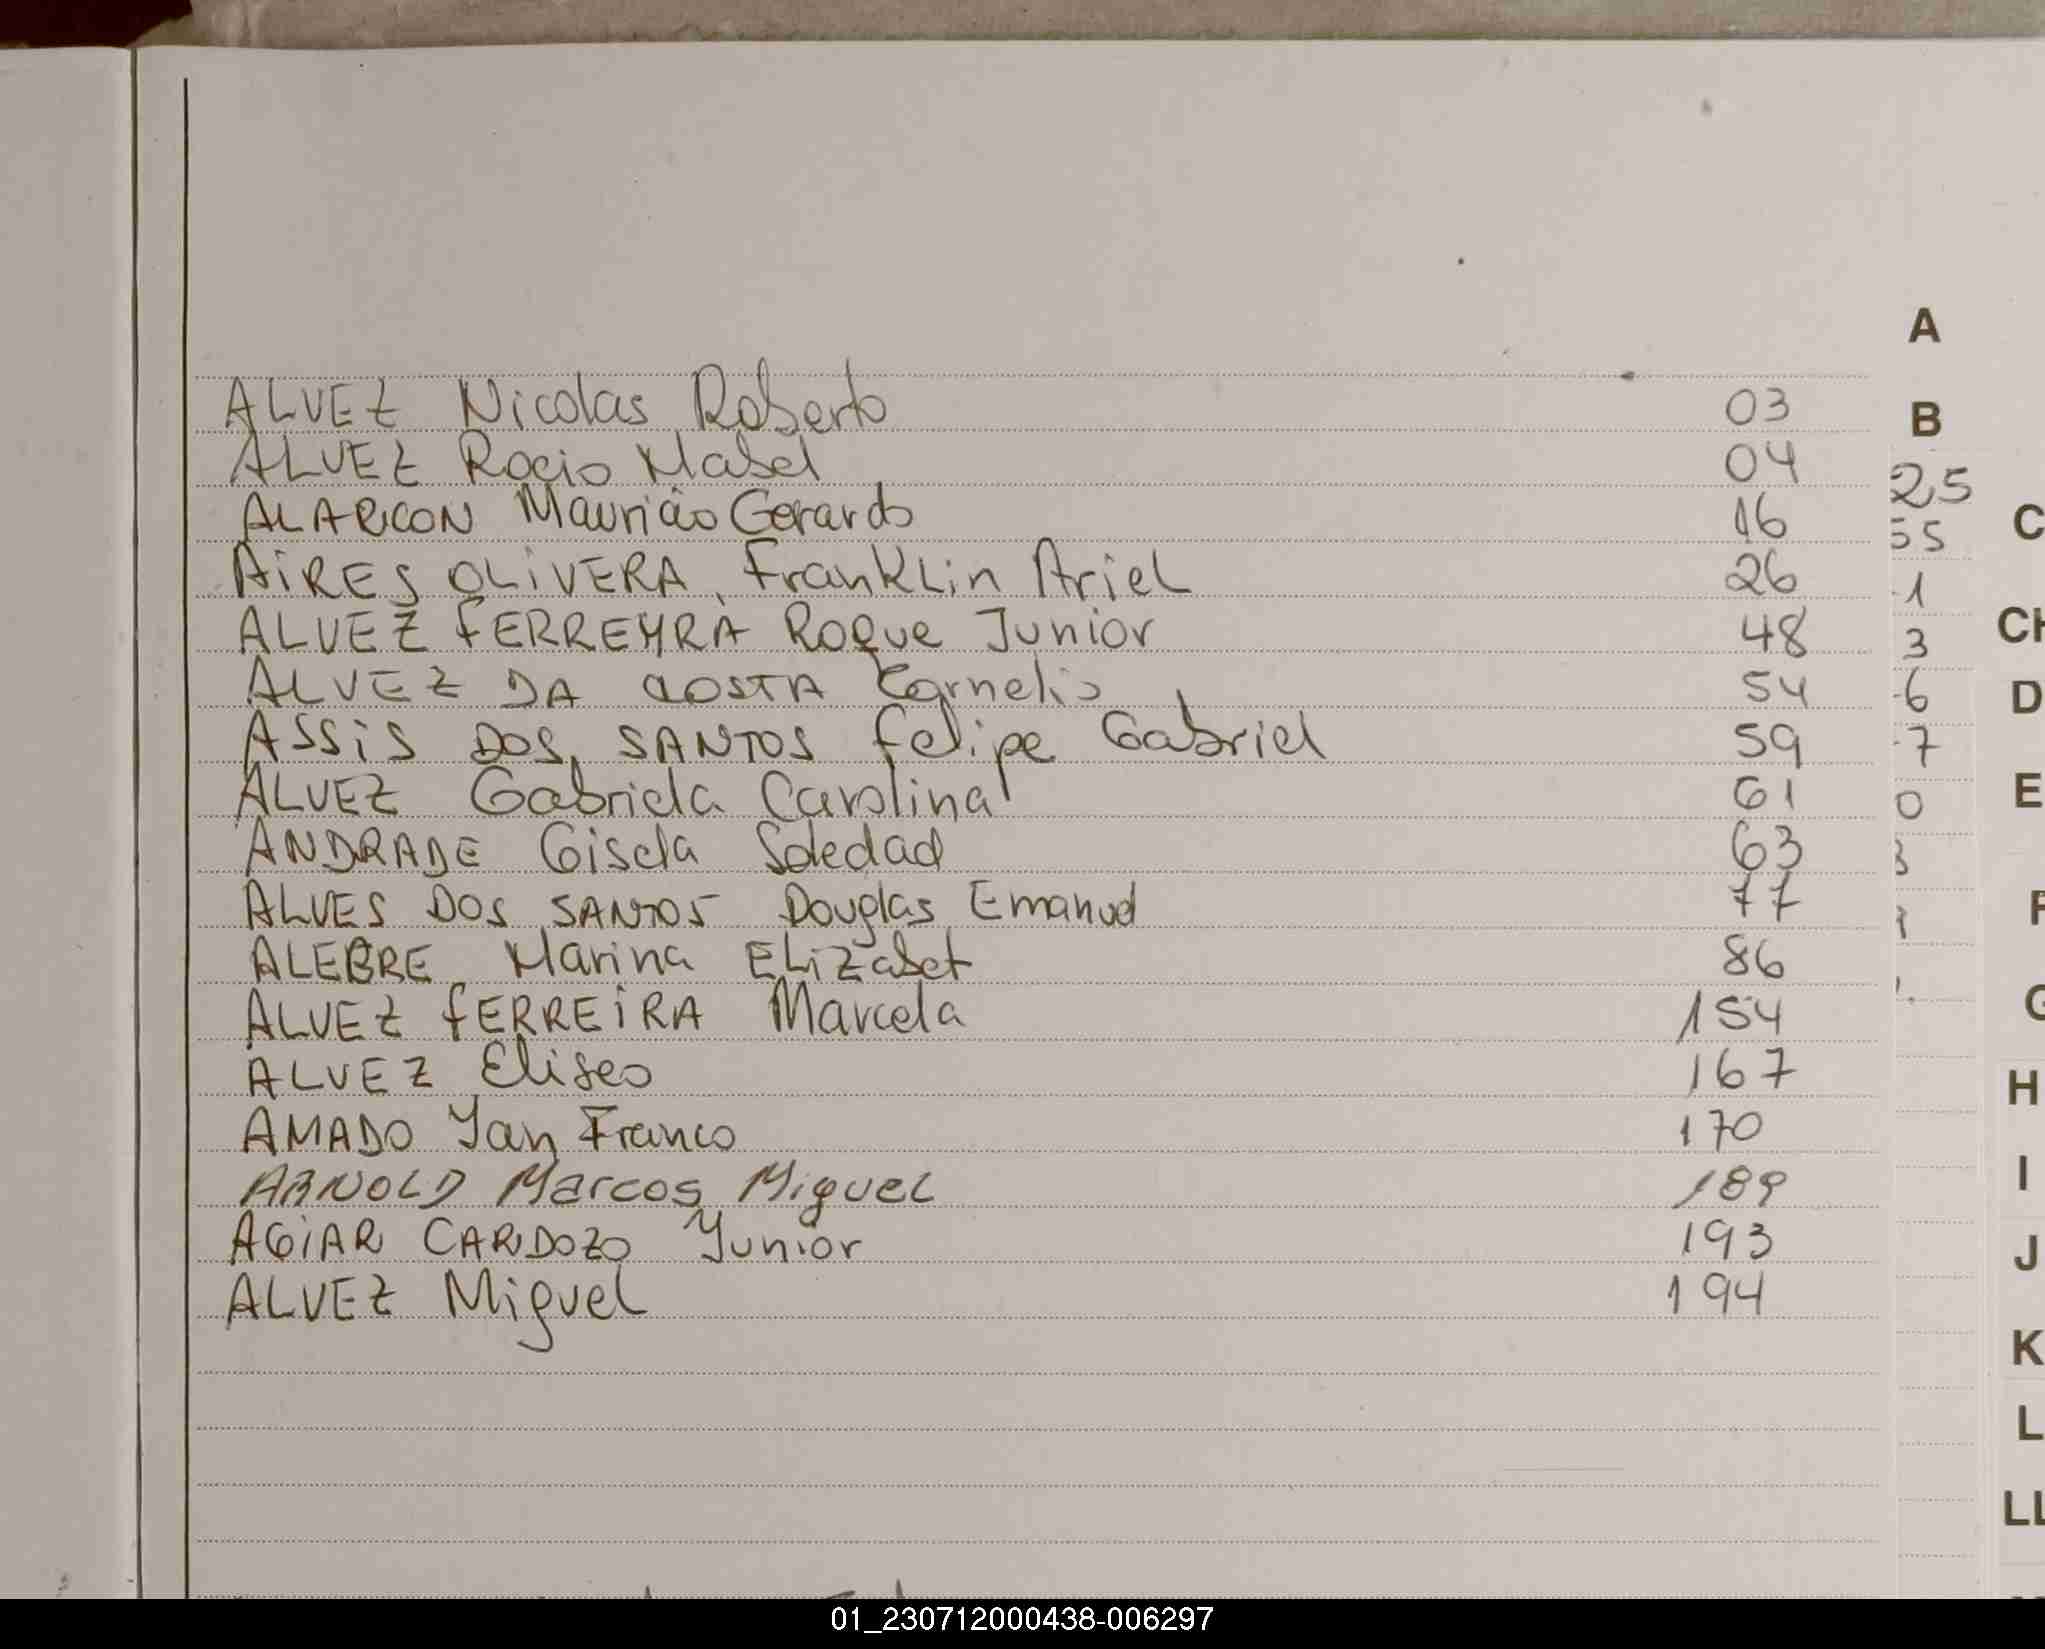 ALVEZ Nicolas Roberto 03
ALVEZ Rocio Mabel 04
ALARCON Mauricio Gerardo 16
AIRES OLIVERA, Franklin Ariel 26
ALVEZ FERREYRA Roque Junior 48
ALVEZ DA COSTA Cornelio 54
ASSIS DOS SANTOS Felipe Gabriel 59
ALVEZ Gabriela Carolina 61
ANDRADE Gisela Soledad 63
ALVES DOS SANTOS Douglas Emanuel 77
ALEBRE Marina Elizabet 86
ALVEZ FERREIRA Marcela 154
ALVEZ Eliseo 167
AMADO Yan Franco 170
ARNOLD Marcos Miguel 189
AGIAR CARDOZO Yunior 193
ALVEZ Miguel 194
A
B
25
55
1
3
6
7
0
3
C
CH
D
E
F
G
H
I
J
K
L
LL
01_230712000438-006297